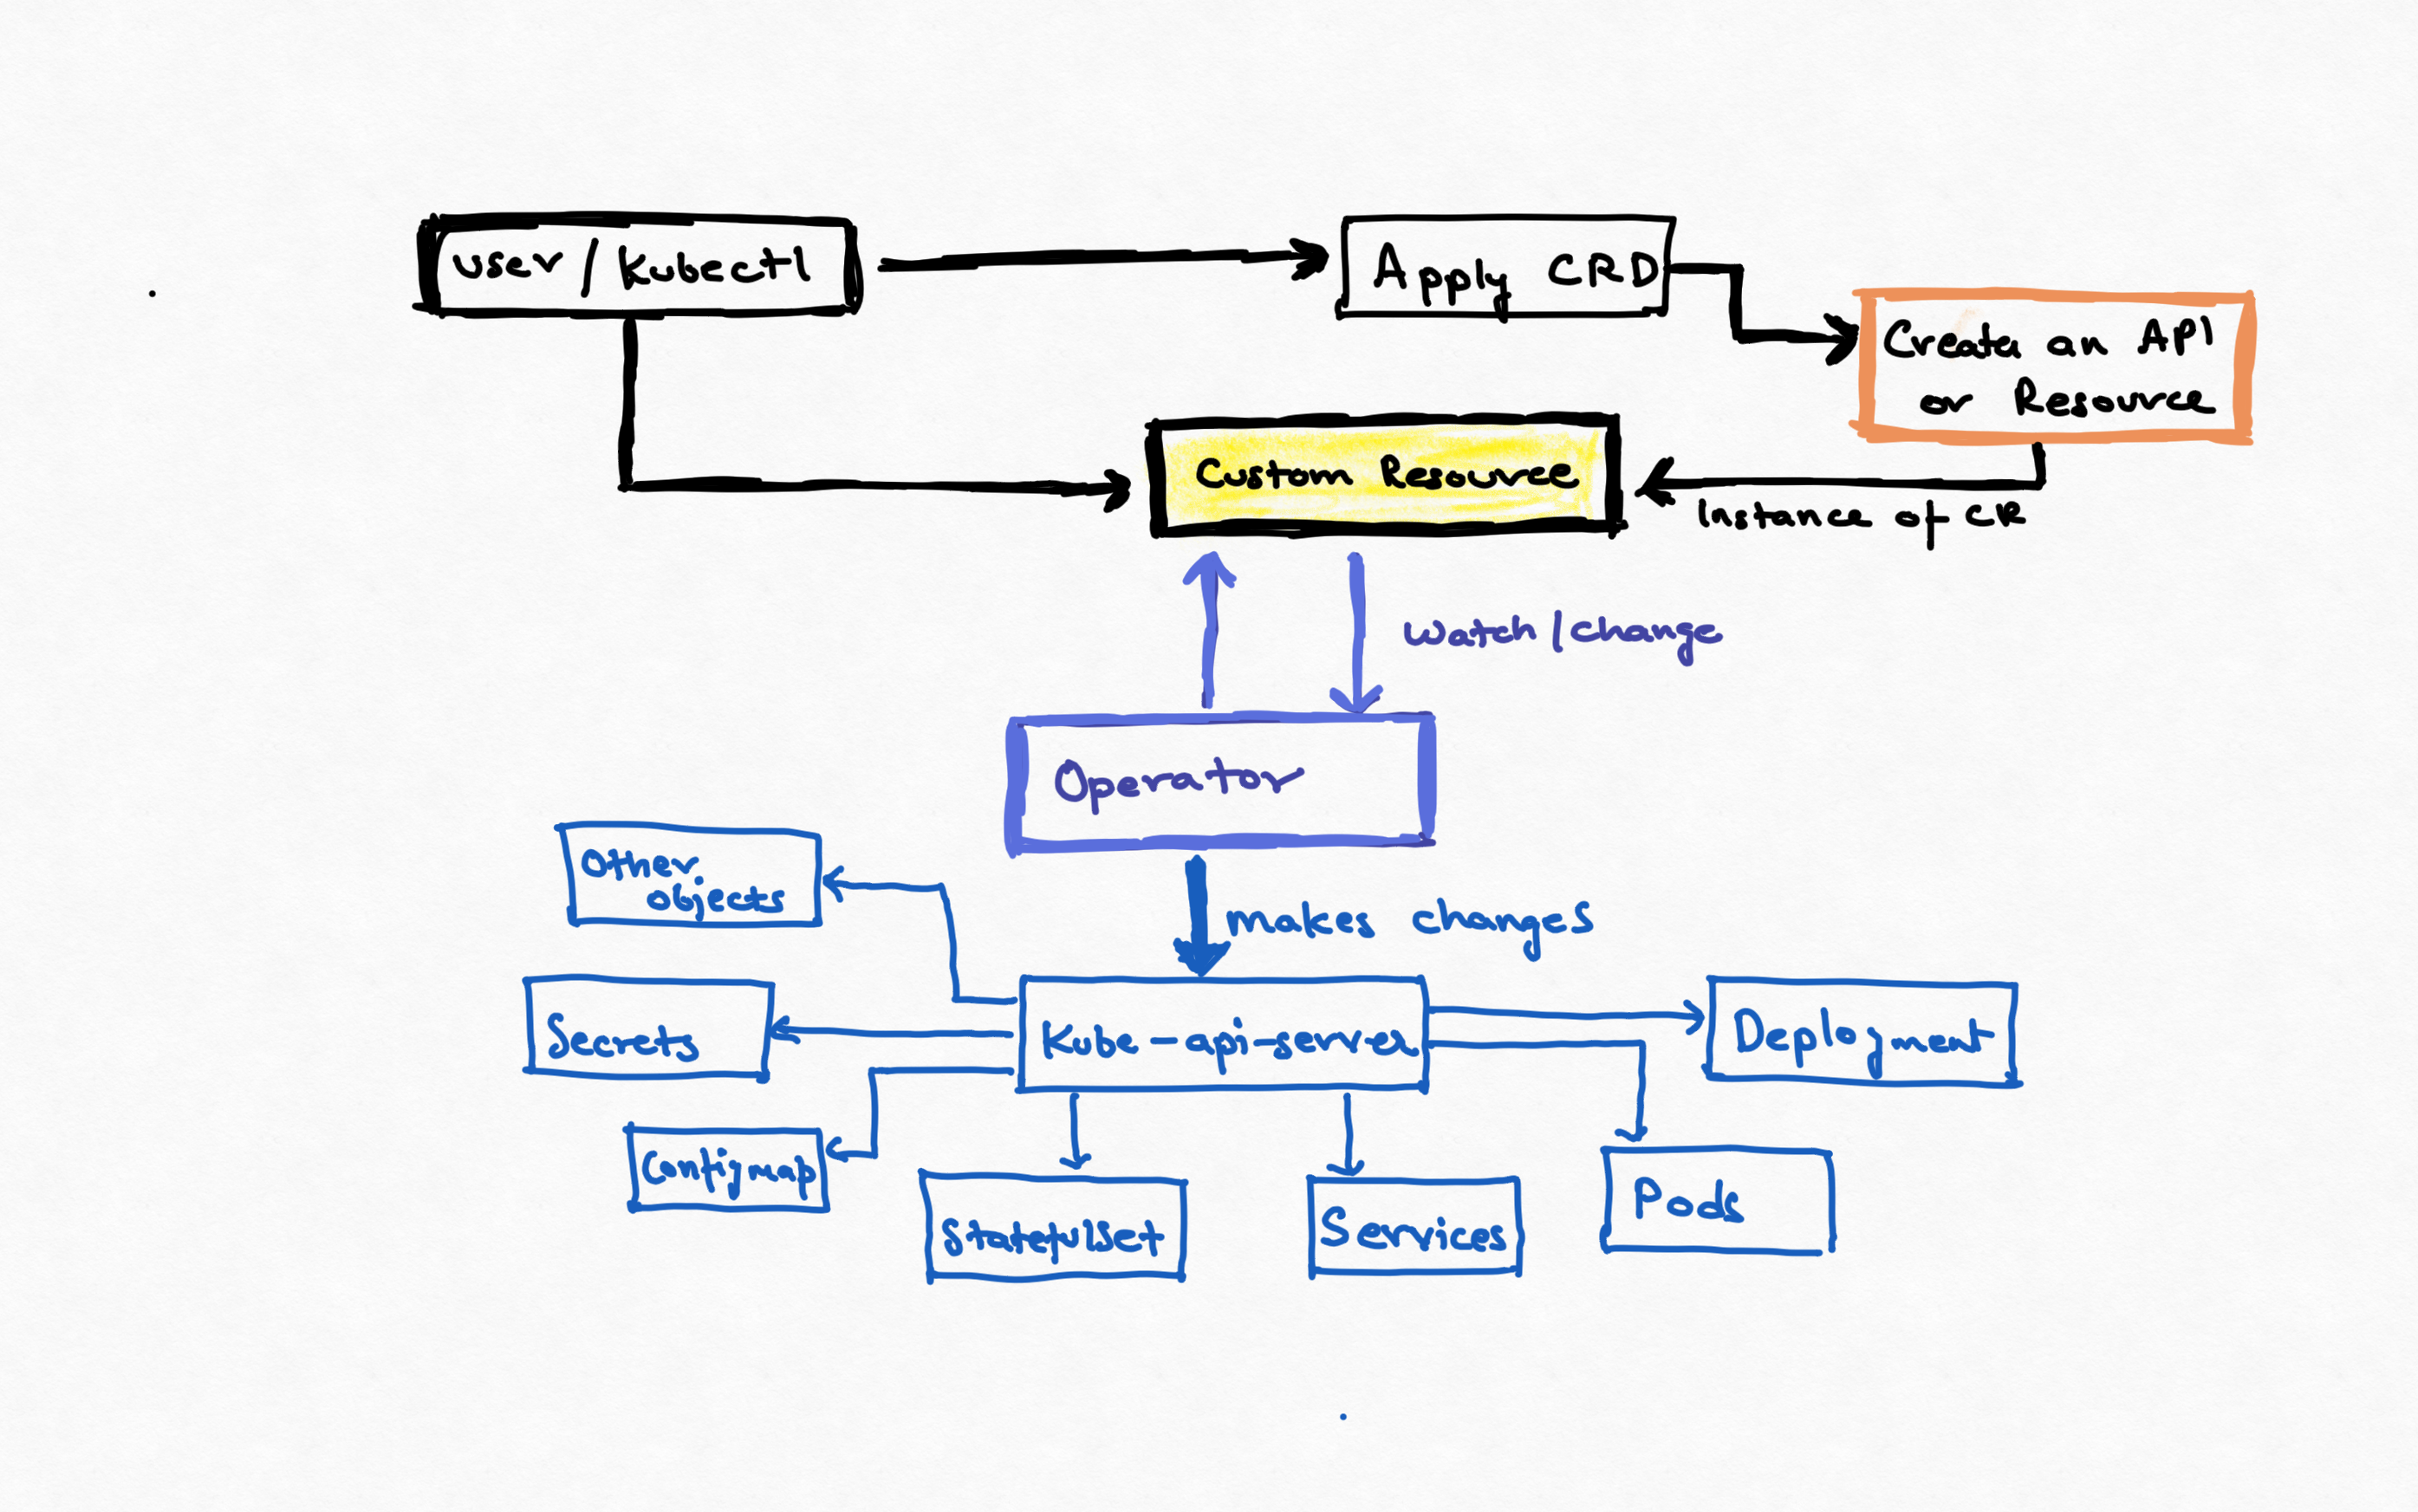 user / kubectl
Apply CRD
Creates an API
or Resource
Custom Resource
Instance of CR
Watch / change
Operator
Other
objects
makes changes
Secrets
Kube-api-server
Deployment
Configmap
Statefulset
Services
Pods